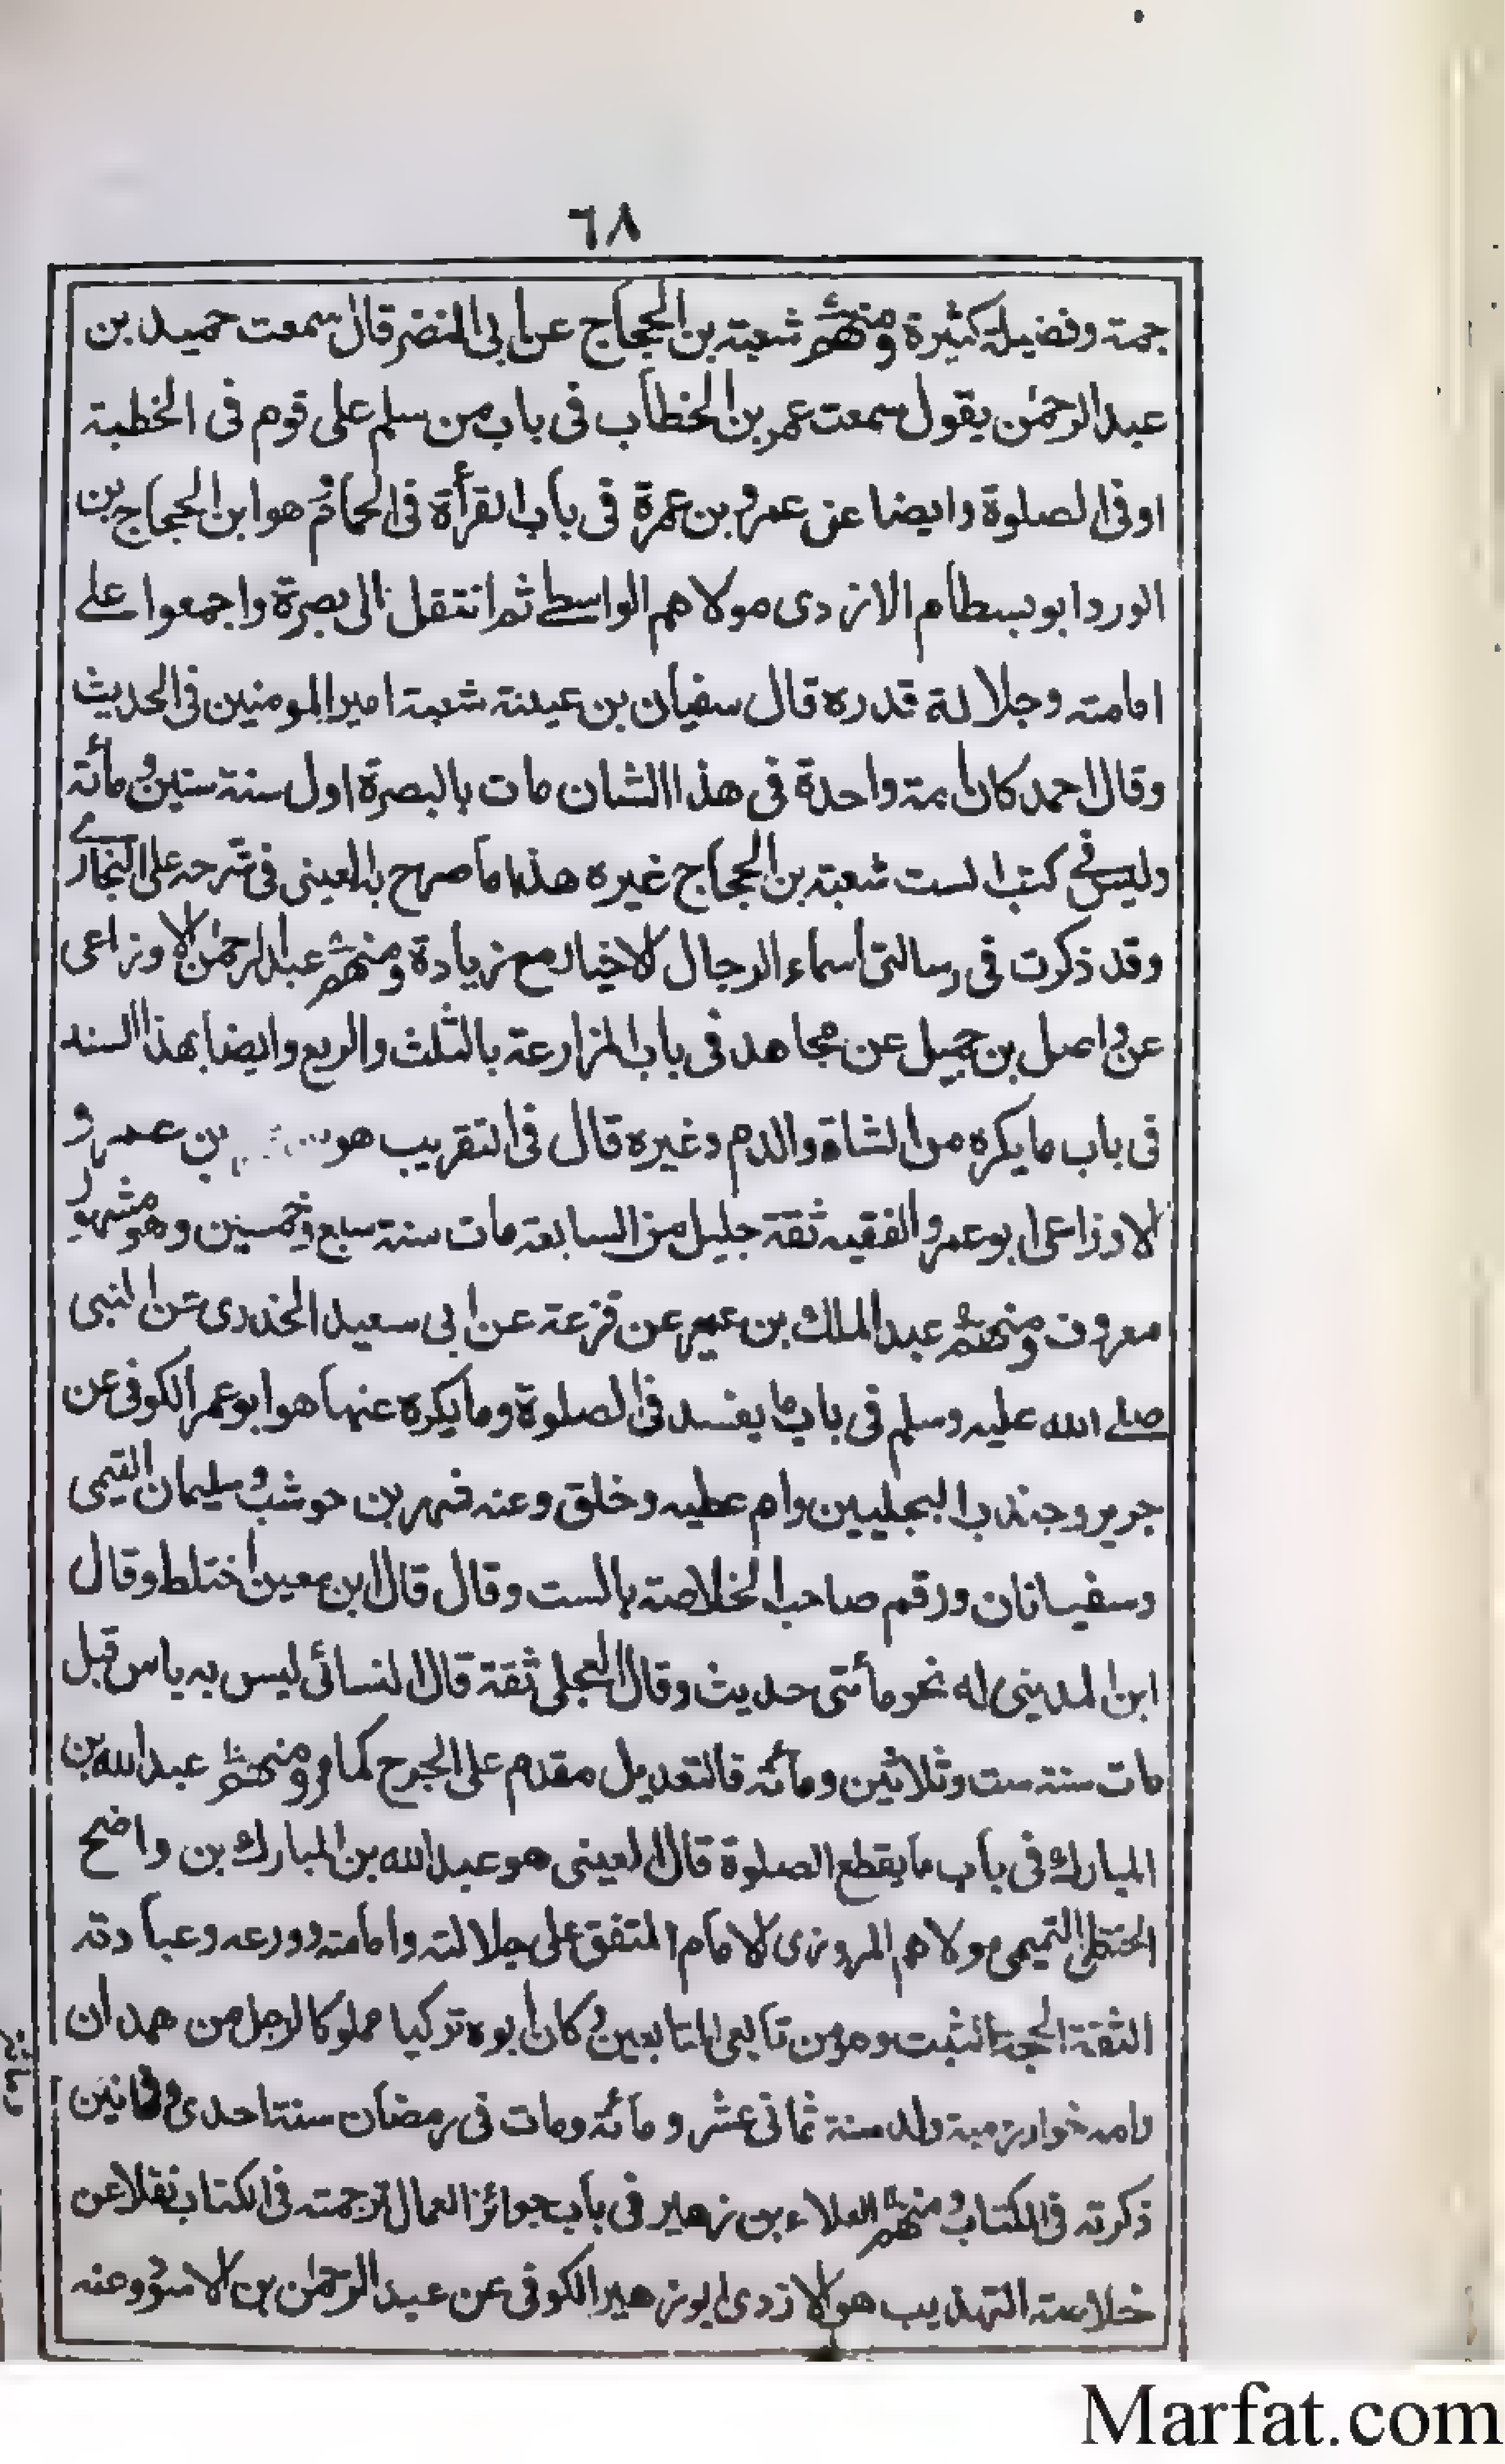 ٦٨
جمة وفضيلة كثيرة ومنهم شعبة بن الحجاج عن ابى النضر قال سمعت حميد بن
عبد الرحمٰن يقول سمعت عمر بن الخطاب فى باب من سلم على قوم فى الخطبة
او فى الصلوة وايضا عن عمرو بن عمرة فى باب القرأة فى الحمام هو ابن الحجاج بن
الورد ابو بسطام الازدى مولاهم الواسطے ثم انتقل الى بصرة واجمعوا علے
امامته وجلالة قدره قال سفيان بن عيينة شعبة امير المومنين فى الحديث
وقال احمد كان امة واحدة فى هذا الشان مات بالبصرة اول سنة ستين ومأئة
وليس فى كتب الست شعبة بن الحجاج غيره هذا ما صرح به العينى فى شرحه على البخارے
وقد ذكرت فى رسالتى اسماء الرجال الاخيار مع زيادة ومنهم عبد الرحمٰن الاوزاعى
عن واصل بن جميل عن مجاهد فى باب المزارعة بالثلث والربع وايضا بهذا السند
فى باب ما يكره من الشاة والدم وغيره قال فى التقريب هو بن عمرو
الاوزاعى ابو عمرو الفقيه ثقة جليل من السابعة مات سنة سبع وخمسين وهو مشهور
معروف ومنهم عبد الملك بن عمير عن قزعة عن ابى سعيد الخدرى عن النبى
صلے الله عليه وسلم فى باب ما يفسد فى الصلوة وما يكره عنها هو ابو عمر الكوفى عن
جرير وجندب البجليين وام عطيه وخلق وعنه فهر بن حوشب وسليمان التيمى
وسفيانان ورقم صاحب الخلاصة بالست وقال قال ابن معين اختلط وقال
ابن المدينى له نحو مأتى حديث وقال العجلى ثقة قال النسائى ليس به باس قيل
مات سنة ست وثلاثين ومأئة فالتعديل مقدم على الجرح كما مر ومنهم عبد الله بن
المبارك فى باب ما يقطع الصلوة قال العينى هو عبد الله بن المبارك بن واضح
الحنظلى التميمى مولاهم المروزى الامام المتفق على جلالته وامامته وورعه وعبادته
الثقة الحجة الثبت وهو من تابعى التابعين وكان ابوه تركيا مملوكا لرجل من همدان
وامه خوارزمية ولد سنة ثمانى عشر ومائة ومات فى رمضان سنة احدى وثمانين
ذكرته فى الكتاب ومنهم العلاء بن زهير فى باب جوائز العمال ترجمته فى الكتاب نقلا عن
خلاصة التهذيب هو الازدى ابو زهير الكوفى عن عبد الرحمٰن بن الاسود وعنه
Marfat.com